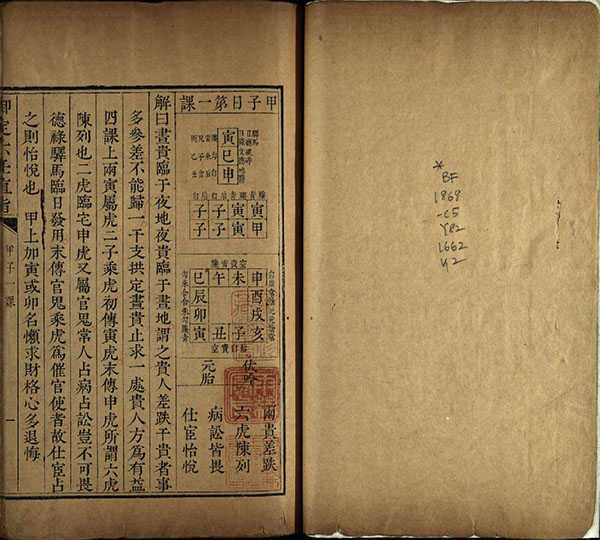 *
BF
1868
.C5
Y82
1662
甲子日第一課
寅巳申
后白后白
子子寅寅
子子寅甲
巳午未申
辰酉
卯戌
寅丑子亥
伏吟
元胎
兩貴差跌
六虎陳列
病訟皆畏
仕宦怡悅
解曰晝貴臨于夜地夜貴臨于晝地謂之貴人差跌干貴者事
多參差不能歸一干支拱定晝貴止求一處貴人方為有益
四課上兩寅屬虎二子乘虎初傳寅虎末傳申虎所謂六虎
陳列也二虎臨宅申虎又屬官鬼常人占病占訟豈不可畏
德祿驛馬臨日發用末傳官鬼乘虎為催官使者故仕宦占
之則怡悅也 甲上加寅或卯名懶求財格心多退悔
御定六壬直指 甲子一課 一